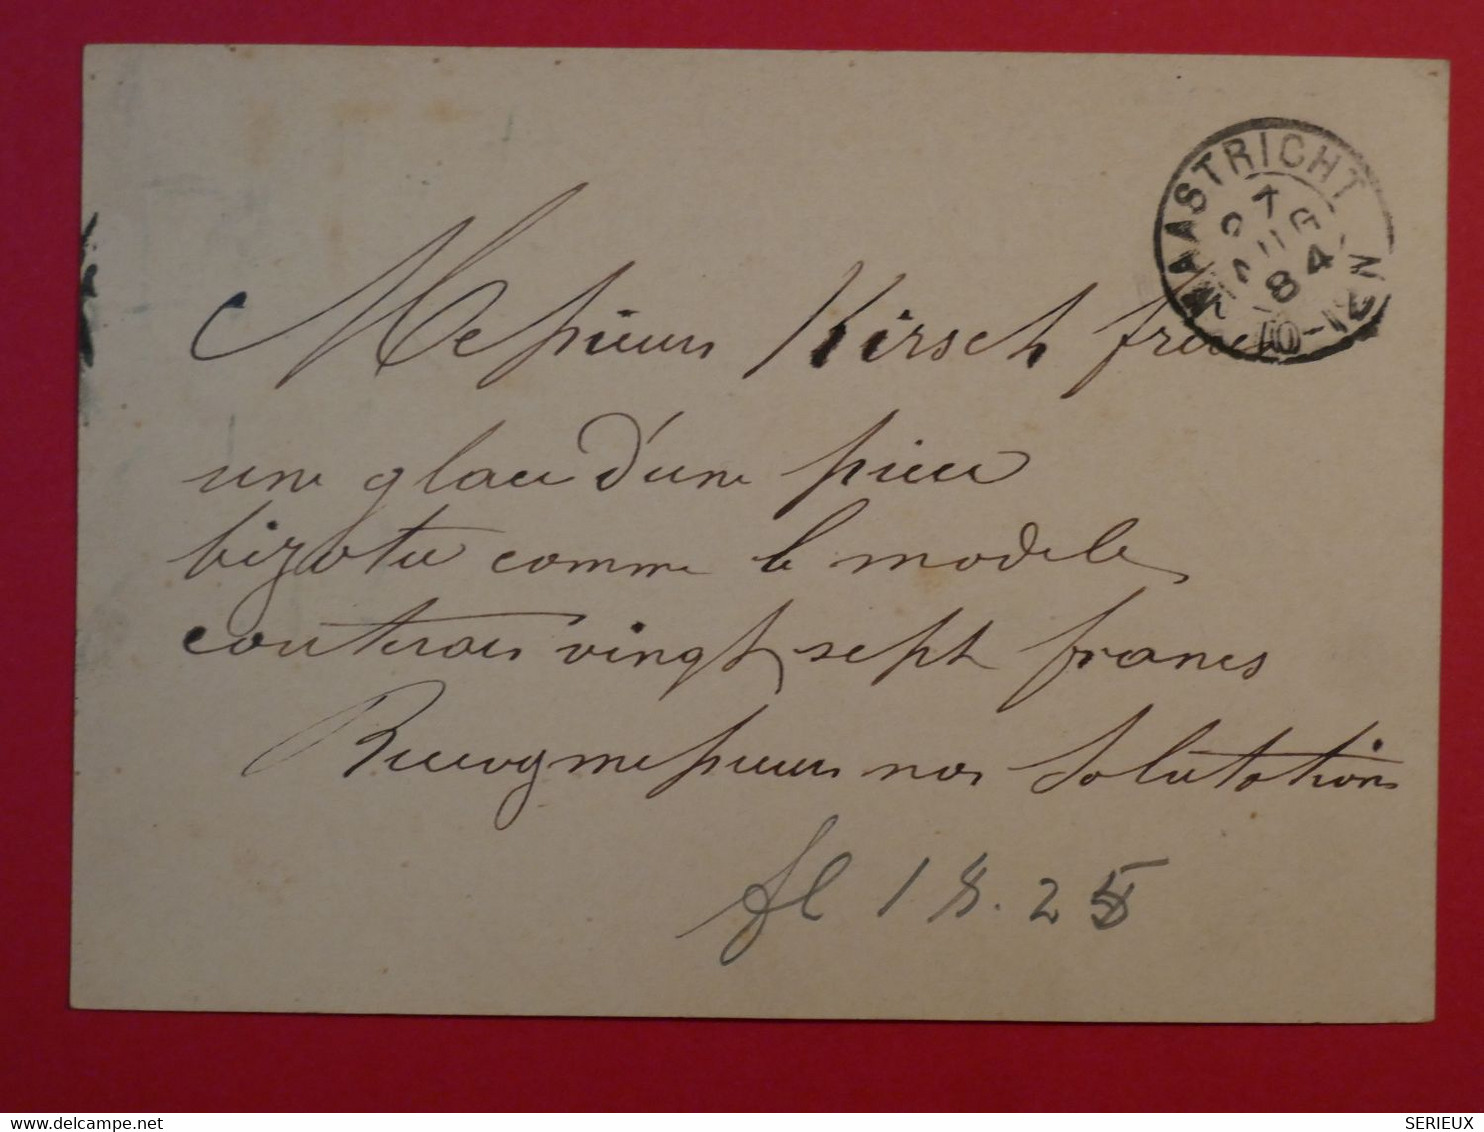 MAASTRICHT
27
AUG
84
10-12M
Messieurs Kirsch frères
une glace d'une pièce
bizotu comme le modele
couterais vingt sept francs
Recevez messieurs nos Solutations
fl 18.25
delcampe.net
SERIEUX